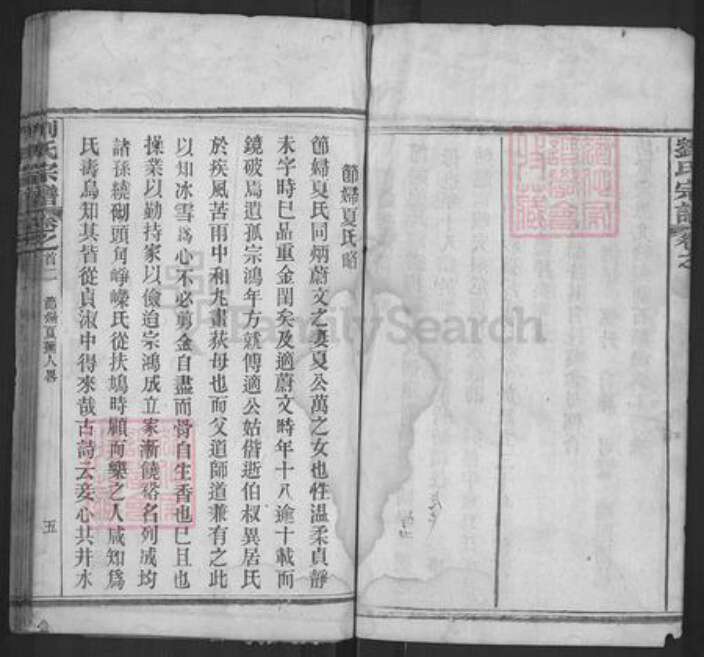 劉氏宗譜 卷之
節婦夏氏略
節婦夏氏同炳蔚文之妻夏公萬之女也性溫柔貞靜
未字時已品重金閨矣及適蔚文時年十八逾十載而
鏡破焉遺孤宗鴻年方就傅適公姑偕逝伯叔異居氏
於疾風苦雨中和丸畫荻母也而父道師道兼有之此
以知冰雪爲心不必剪金自盡而骨自生香也已且也
操業以勤持家以儉迨宗鴻成立家漸饒裕名列成均
諸孫繞砌頭角崢嶸氏從扶鳩時顧而樂之人咸知爲
氏壽烏知其皆從貞淑中得來哉古詩云妾心共井水
劉氏宗譜 卷之首二
節婦夏孺人畧
五
FamilySearch